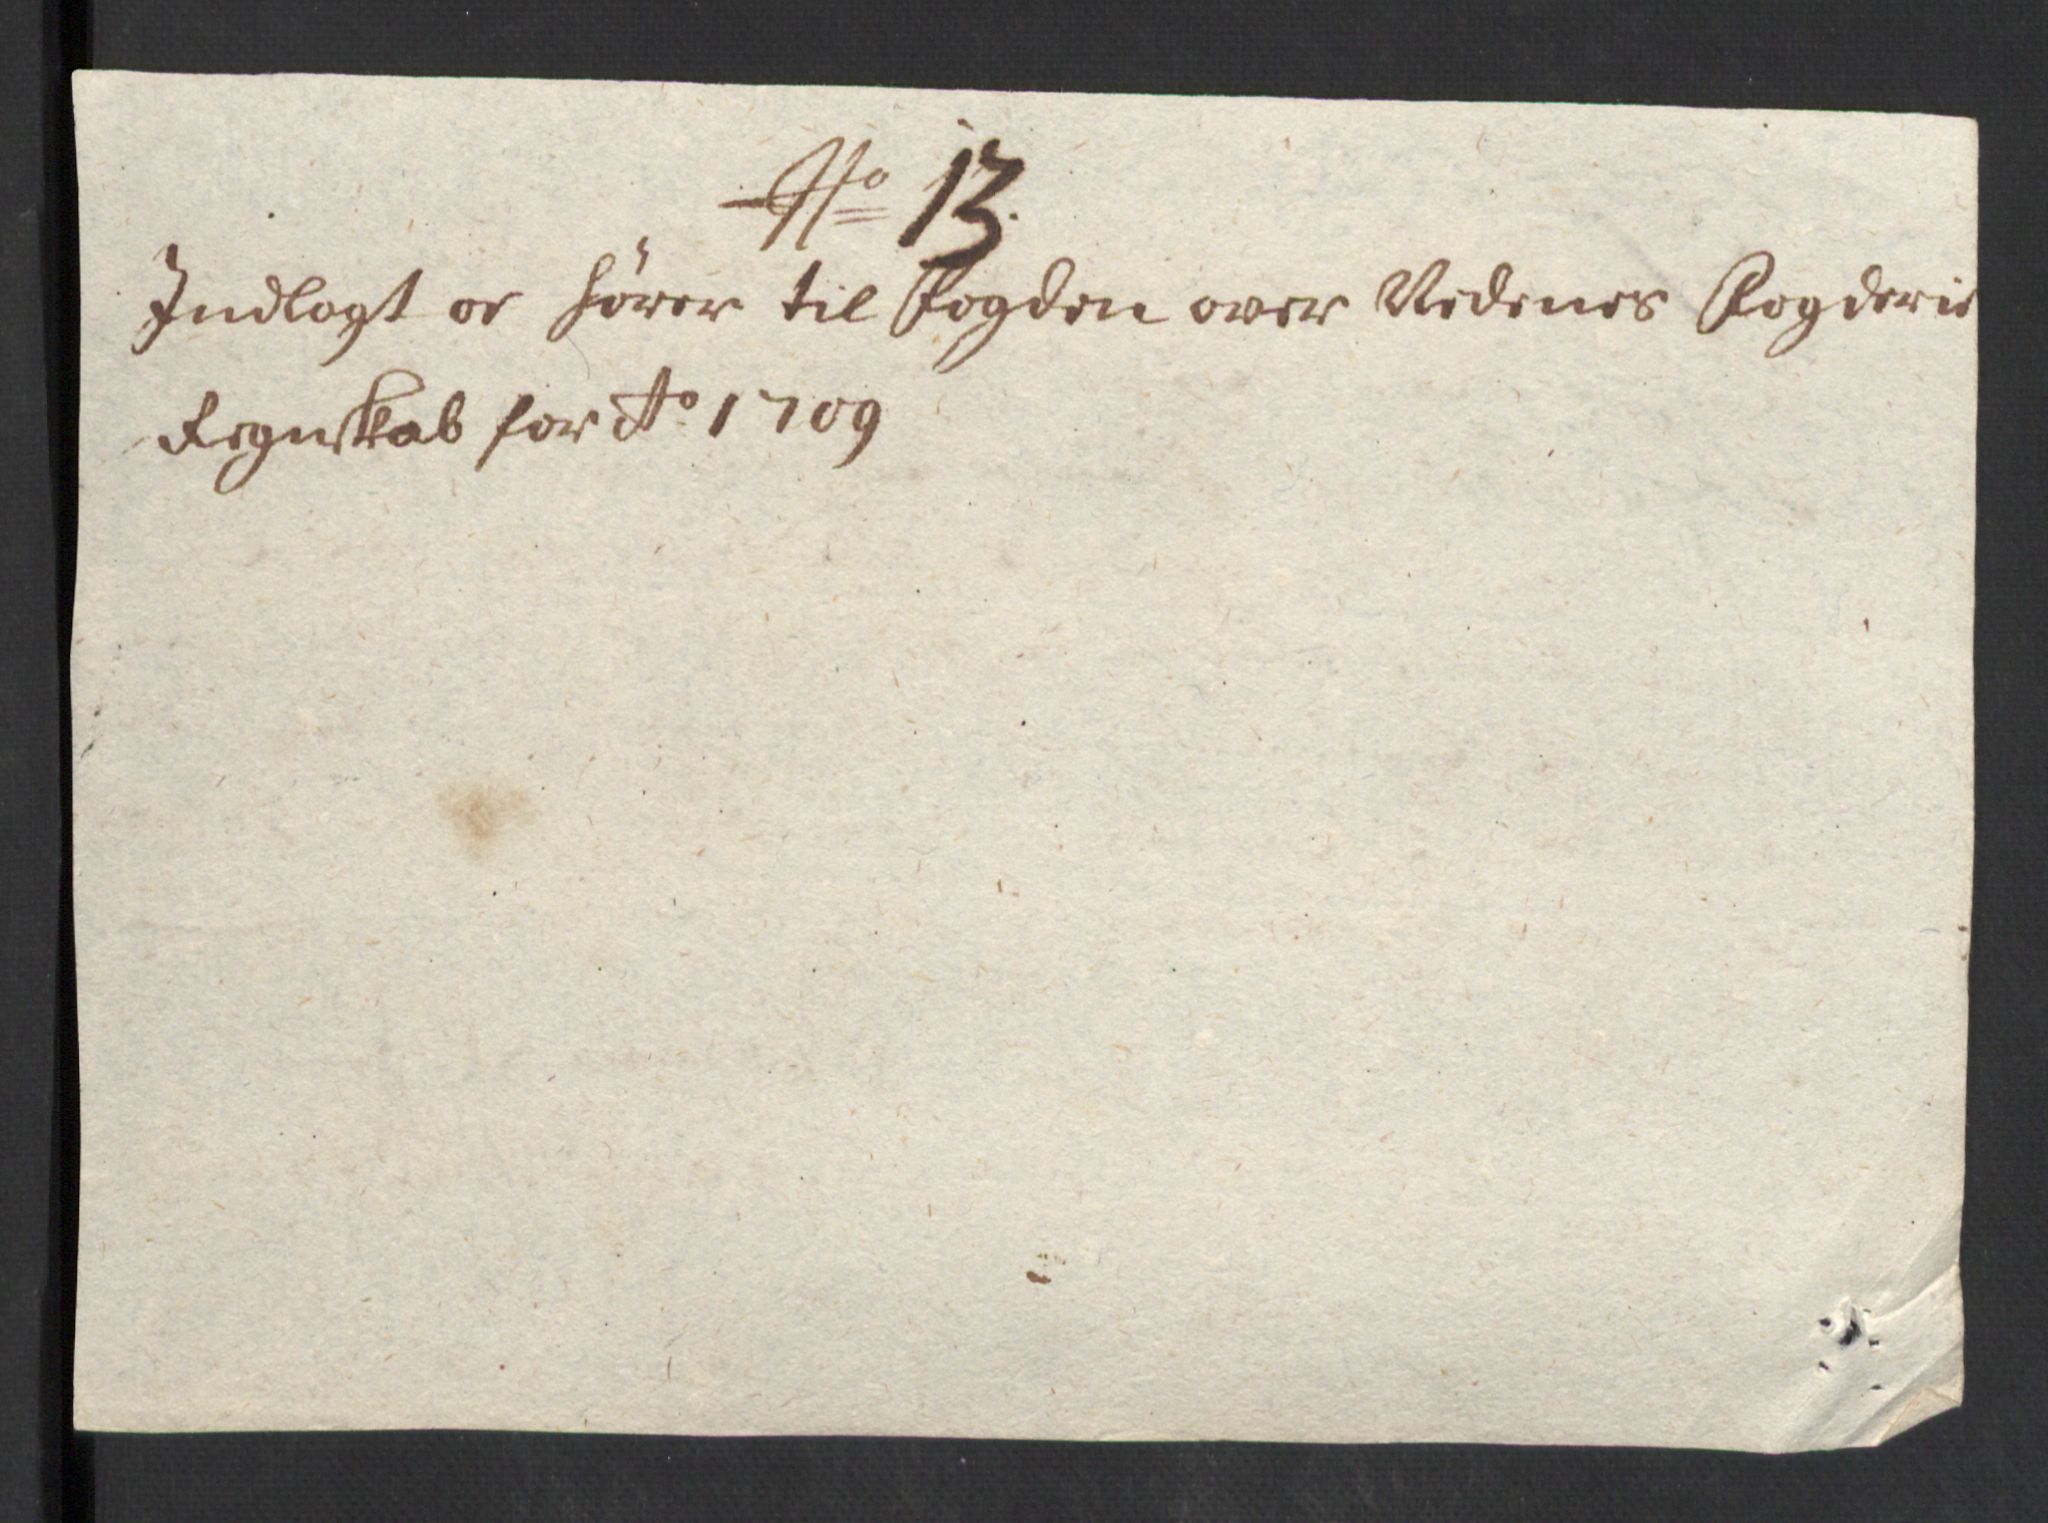 No 13.
Indlagt oc hörer til Fogden over Nedenes Fogderie
Regnskab for Ao 1709